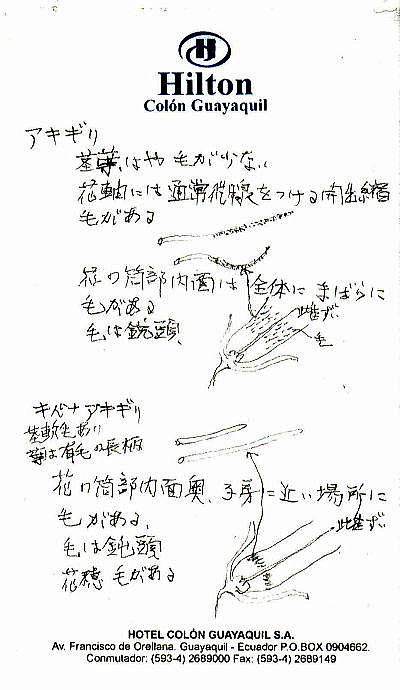 Hilton
Colón Guayaquil
アキギリ
茎葉はや毛が少ない
花軸には通常腺をつける開出
毛がある
花の筒部内面は全体にまばらに
毛がある
毛は鈍頭
雌ずい
毛
キバナアキギリ
茎軟毛あり
葉は有毛の長柄
花の筒部内面奥、子房に近い場所に
毛がある、
毛は鈍頭
花穂 毛がある
雌ずい
HOTEL COLÓN GUAYAQUIL S.A.
Av. Francisco de Orellana. Guayaquil - Ecuador P.O.BOX 0904662.
Conmutador: (593-4) 2689000 Fax: (593-4) 2689149